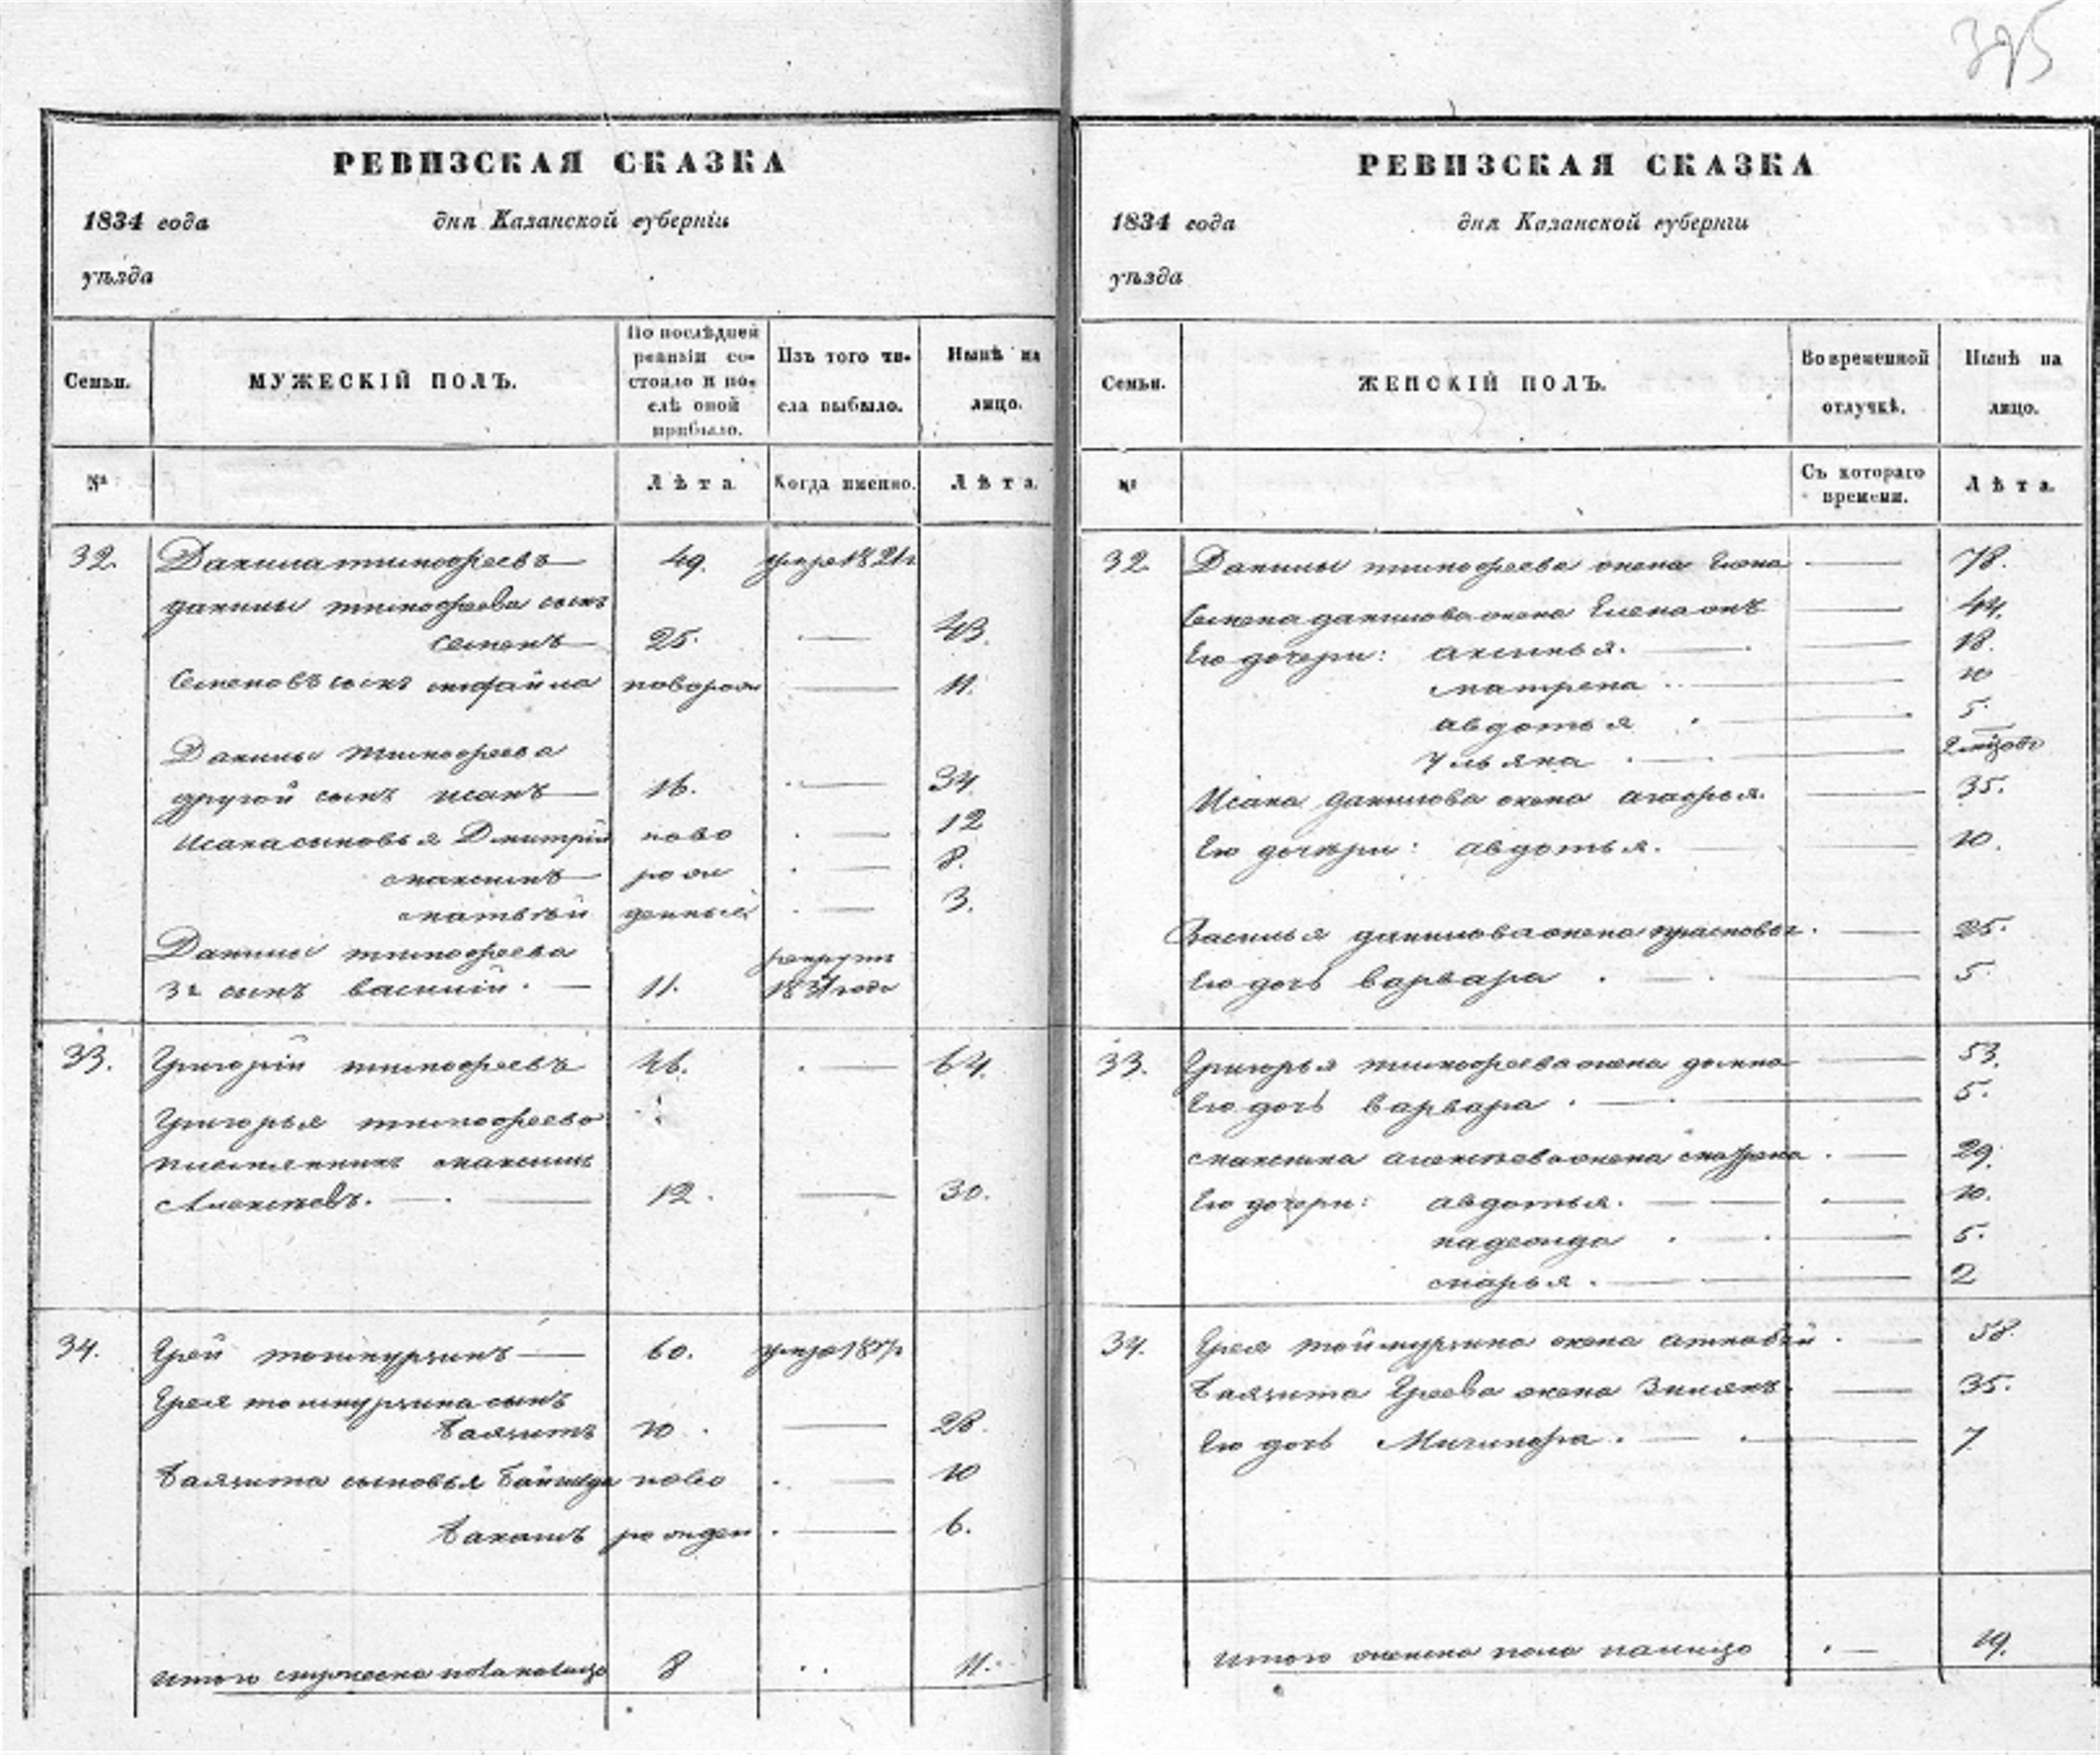 395
РЕВИЗСКАЯ СКАЗКА
1834 года дня Казанской губерніи
уѣзда
Семьи.
МУЖЕСКІЙ ПОЛЪ.
По послѣдней ревизіи состояло и послѣ оной прибыло.
Изъ того числа выбыло.
Нынѣ на лицо.
№
Лѣта.
Когда именно.
Лѣта.
32. Данила тимофеевъ 49. умре 1821г
данилы тимофеева сынъ
семенъ 25. 43.
Семеновъ сынъ михайла новорож 11.
Данилы тимофеева
другой сынъ исакъ 16. 34
Исака сыновья Дмитрий ново 12
максимъ рож 8.
матвѣй денныя 3.
Данилы тимофеева рекрут
3й сынъ василий. 11. 1831 годе
33. Григорій тимофеевъ 46. 64.
Григорья тимофеева
племянникъ максимъ
Алексѣевъ. 12. 30.
34. 60. умре 1827г
сынъ
Баязитъ 10. 28.
Баязита сыновья ново 10
рожден 6.
итого мужеска пола налицо 8 11.
РЕВИЗСКАЯ СКАЗКА
1834 года дня Казанской губерніи
уѣзда
Семьи.
ЖЕНСКІЙ ПОЛЪ.
Во временной отлучкѣ.
Нынѣ на лицо.
№
Съ котораго времени.
Лѣта.
32. Данилы тимофеева жена 78.
Семена данилова жена Елена 44.
Его дочери: аксинья. 18.
матрена 10
авдотья 5.
Ульяна
Исака данилова жена агафья. 35.
Его дочери: авдотья. 10.
Василья данилова жена прасковья. 25.
Его дочь варвара 5.
33. Григорья тимофеева жена домна 53.
Его дочь варвара. 5.
максима алексѣева жена 29.
Его дочери: авдотья. 10.
надежда 5.
марья. 2
34. жена 58.
Баязита жена 35.
Его дочь 7
итого женска пола налицо 19.